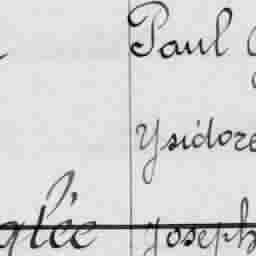 Paul
Ysidore
glée Joseph